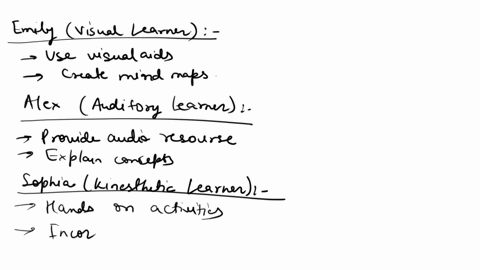 Emily (Visual Learner) :-
→ Use visual aids
→ Create mind maps
Alex (Auditory Learner) :-
→ Provide audio resourse
→ Explain concepts
Sophia (Kinesthetic Learner) :-
→ Hands on activities
→ Incor